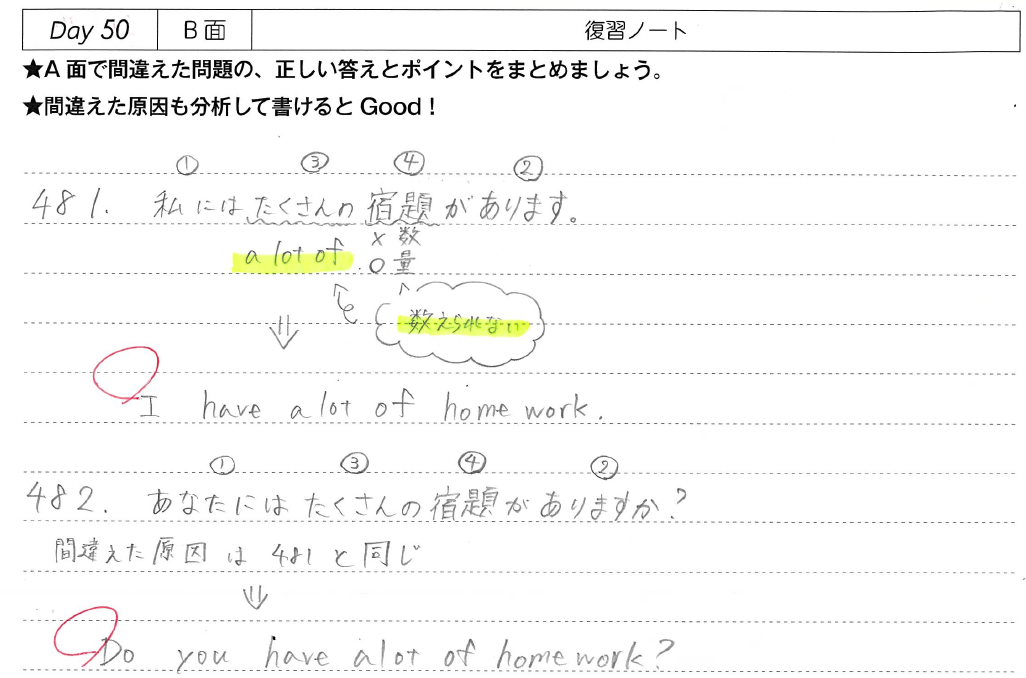 Day 50 B面 復習ノート
★A面で間違えた問題の、正しい答えとポイントをまとめましょう。
★間違えた原因も分析して書けるとGood！
① ③ ④ ②
481. 私にはたくさんの宿題があります。
a lot of × 数
○ 量
数えられない
⇓
I have a lot of homework.
① ③ ④ ②
482. あなたにはたくさんの宿題がありますか？
間違えた原因は481と同じ
⇓
Do you have a lot of homework?